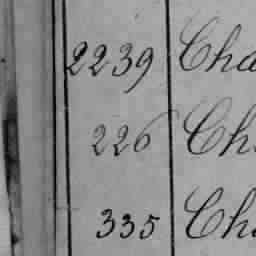 2239 Cha
226 Ch
335 Cha